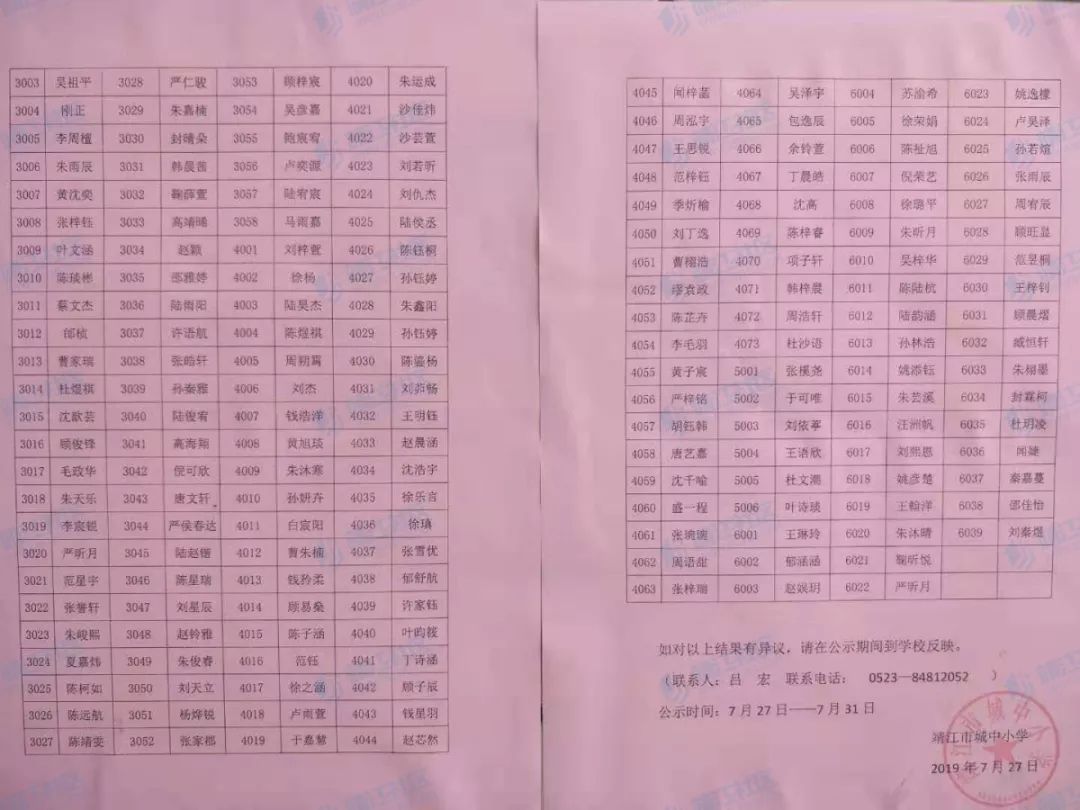 3003 吴祖平 3028 严仁骏 3053 顾梓宸 4020 朱运成
3004 刚正 3029 朱嘉楠 3054 吴彦嘉 4021 沙佳炜
3005 李周檀 3030 封晴朵 3055 鲍宸宥 4022 沙芸萱
3006 朱雨辰 3031 韩晨茜 3056 卢奕源 4023 刘若昕
3007 黄沈奕 3032 鞠薛萱 3057 陆宥宸 4024 刘仇杰
3008 张梓钰 3033 高靖晞 3058 马雨嘉 4025 陆俟丞
3009 叶文涵 3034 赵颖 4001 刘梓萱 4026 陈钰桐
3010 陈琰彬 3035 邵雅婷 4002 徐杨 4027 孙钰婷
3011 蔡文杰 3036 陆雨阳 4003 陆昊杰 4028 朱鑫阳
3012 邰桢 3037 许语航 4004 陈煜祺 4029 孙钰婷
3013 曹家瑞 3038 张皓轩 4005 周朔霄 4030 陈鎏杨
3014 杜煜祺 3039 孙秦雅 4006 刘杰 4031 刘茆畅
3015 沈歆芸 3040 陆俊宥 4007 钱浩洋 4032 王明钰
3016 顾俊锋 3041 高海翔 4008 黄旭琰 4033 赵晨涵
3017 毛政华 3042 倪可欣 4009 朱沐寒 4034 沈浩宇
3018 朱天乐 3043 唐文轩 4010 孙妍卉 4035 徐乐言
3019 李宸锐 3044 严侯春达 4011 白宸阳 4036 徐瑱
3020 严昕月 3045 陆赵锴 4012 曹朱楠 4037 张雪优
3021 范星宇 3046 陈星瑞 4013 钱羚柔 4038 郁舒航
3022 张誉轩 3047 刘星辰 4014 顾易燊 4039 许家钰
3023 朱峻熙 3048 赵铃雅 4015 陈子涵 4040 叶昀筱
3024 夏嘉炜 3049 朱俊睿 4016 范钰 4041 丁诗涵
3025 陈柯如 3050 刘天立 4017 徐之涵 4042 顾子辰
3026 陈远航 3051 杨烨锐 4018 卢雨萱 4043 钱星羽
3027 陈靖雯 3052 张家郡 4019 于嘉慧 4044 赵芯然
4045 闻梓菡 4064 吴泽宇 6004 苏渝希 6023 姚逸檬
4046 周泓宇 4065 包逸辰 6005 徐荣娟 6024 卢吴泽
4047 王思锐 4066 余铃萱 6006 陈祉旭 6025 孙若煊
4048 范梓钰 4067 丁晨皓 6007 倪荣艺 6026 张雨辰
4049 季炘榆 4068 沈高 6008 徐璐平 6027 周宥辰
4050 刘丁逸 4069 陈梓睿 6009 朱昕月 6028 顾旺显
4051 曹槢浩 4070 项子轩 6010 吴梓华 6029 范昱桐
4052 缪袁政 4071 韩梓晨 6011 陈陆杭 6030 王梓钊
4053 陈芷卉 4072 周浩轩 6012 陆韵涵 6031 顾晨熠
4054 李毛羽 4073 杜沙语 6013 孙林浩 6032 臧恒轩
4055 黄子宸 5001 张槿尧 6014 姚添钰 6033 朱栩墨
4056 严梓铭 5002 于可唯 6015 朱芸溪 6034 封霖柯
4057 胡钰韩 5003 刘依葶 6016 汪洲帆 6035 杜玥凌
4058 唐艺嘉 5004 王语欣 6017 刘熙恩 6036 闻婕
4059 沈千喻 5005 杜文潮 6018 姚彦楚 6037 秦嘉蔓
4060 盛一程 5006 叶诗琰 6019 王翰洋 6038 邵佳怡
4061 张琬璃 6001 王琳玲 6020 朱沐晴 6039 刘秦煜
4062 周语甜 6002 郁涵涵 6021 鞠昕悦
4063 张梓瑞 6003 赵娱玥 6022 严昕月
如对以上结果有异议，请在公示期间到学校反映。
（联系人：吕 宏 联系电话： 0523—84812052 ）
公示时间：7 月 27 日——7 月 31 日
靖江市城中小学
2019 年 7 月 27 日